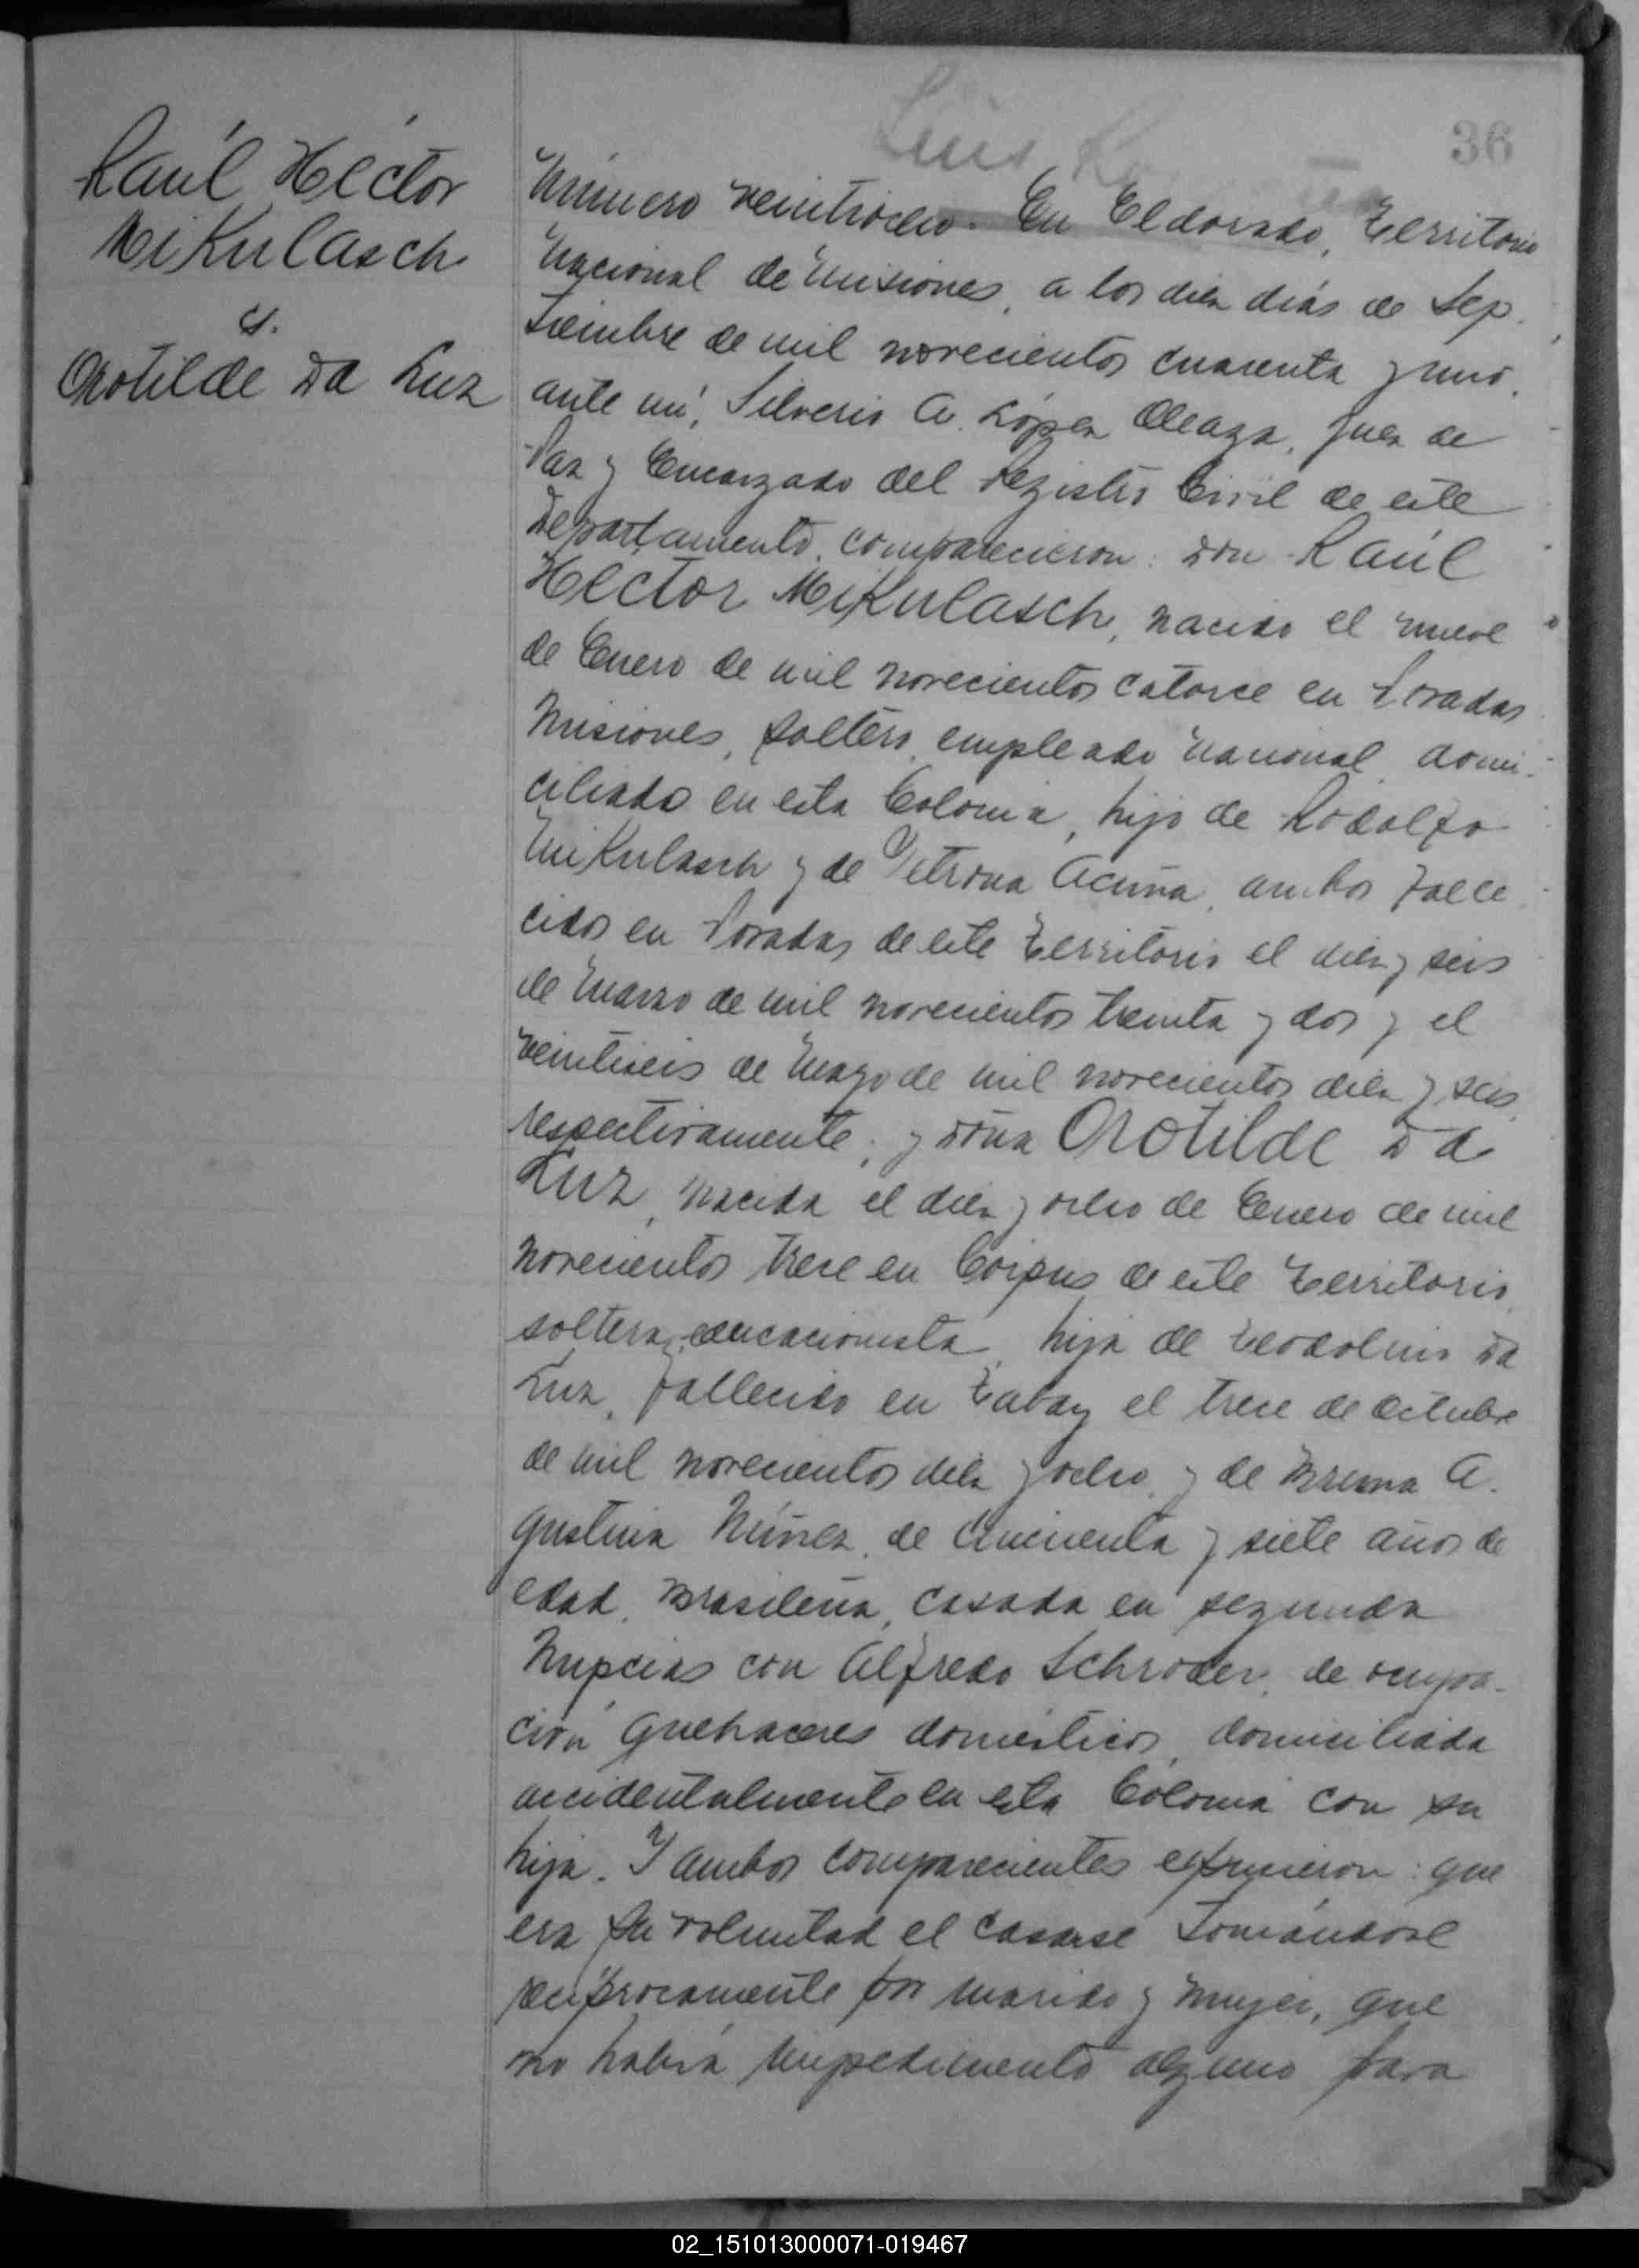 36
Raúl Héctor
Mikulasch
y.
Orotilde Da Luz
Número veintiocho. En Eldorado, Territorio
Nacional de Misiones, a los diez días de Sep-
tiembre de mil novecientos cuarenta y uno,
ante mí, Silverio A. López Aleaga, Juez de
Paz y Encargado del Registro Civil de este
Departamento, comparecieron: Don Raúl
Héctor Mikulasch, nacido el nueve
de Enero de mil novecientos catorce en Posadas
Misiones, soltero, empleado nacional, domi-
ciliado en esta Colonia, hijo de Rodolfo
Mikulasch y de Petrona Acuña, ambos falle
cidos en Posadas de este Territorio el diez y seis
de Marzo de mil novecientos treinta y dos y el
veintiseis de Mayo de mil novecientos diez y seis,
respectivamente; y Doña Orotilde Da
Luz, nacida el diez y ocho de Enero de mil
novecientos trece en Corpus de este Territorio,
soltera, educacionista, hija de Teodolino Da
Luz, fallecido en Tabay el trece de Octubre
de mil novecientos diez y ocho, y de A.
gustina Núñez, de cincuenta y siete años de
edad, Brasileña, casada en segunda
Nupcias con Alfredo Schroder, de ocupa-
ción quehaceres domésticos, domiciliada
accidentalmente en esta Colonia con su
hija. Y ambos comparecientes expusieron: que
era su voluntad el casarse tomándose
recíprocamente por marido y mujer, que
no había impedimento alguno para
02_151013000071-019467